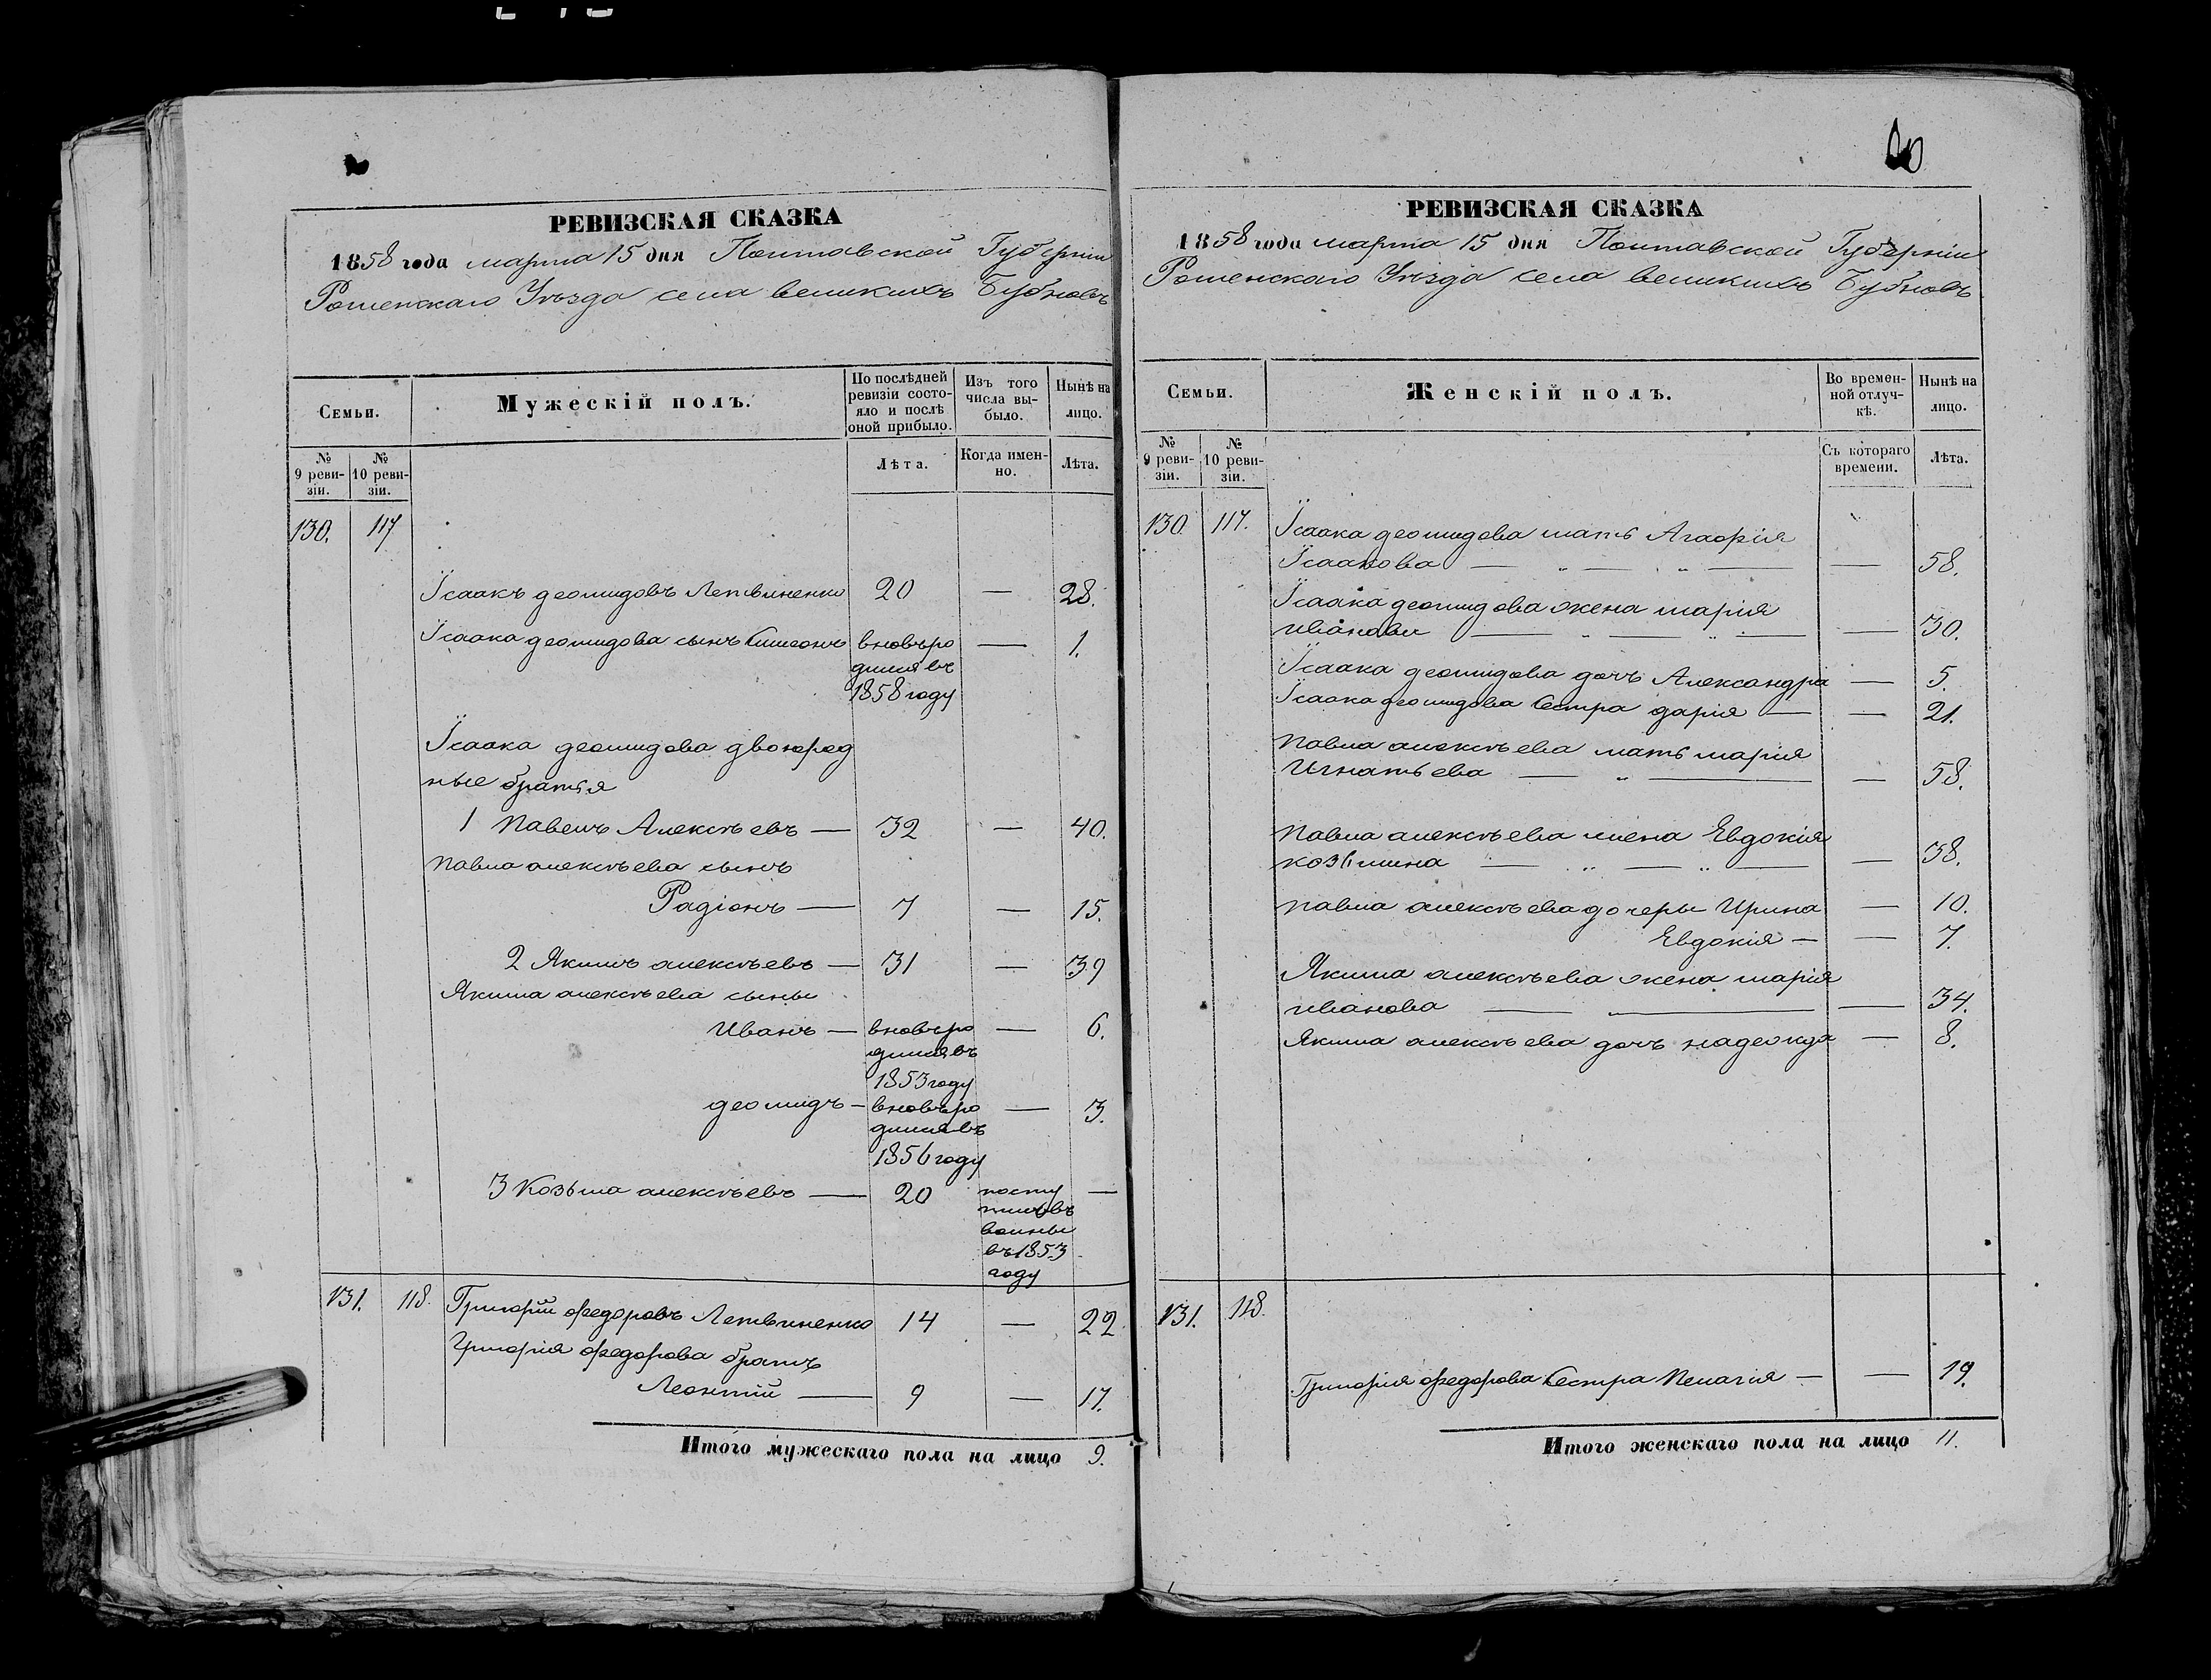 РЕВИЗСКАЯ СКАЗКА
1858 года марта 15 дня Полтавской Губерніи
Роменскаго Уѣзда села великихъ Бубновъ
Семьи.
Мужескій полъ.
По послѣдней ревизіи состояло и послѣ оной прибыло.
Изъ того числа выбыло.
Нынѣ на лицо.
№ 9 ревизіи.
№ 10 ревизіи.
Лѣта.
Когда именно.
Лѣта.
130. 117
Ісаакъ деомидовъ Летвиненко 20 — 28.
Ісаака деомидова сынъ Симеонъ вновьро — 1.
дился въ
1858 году
Ісаака деомидова двоюрод
ные братья
1 Павелъ Алексѣевъ — 32 — 40.
Павла алексѣева сынъ
Радіонъ — 7 — 15.
2 Якимъ алексѣевъ — 31 — 39
Якима алексѣева сыны
Иванъ — вновьро — 6.
дился въ
1853 году
деомидъ — вновьро — 3.
дился въ
1856 году
3 Козьма алексѣевъ — 20 посту —
пилъ въ
воины
въ 1853
году
131. 118. Григорій федоровъ Летвиненко 14 — 22
Григорія федорова братъ
Леонтій — 9 — 17.
Итого мужескаго пола на лицо 9.
РЕВИЗСКАЯ СКАЗКА
1858 года марта 15 дня Полтавской Губерніи
Роменскаго Уѣзда села великихъ Бубновъ
Семьи.
Женскій полъ.
Во временной отлучкѣ.
Нынѣ на лицо.
№ 9 ревизіи.
№ 10 ревизіи.
Съ котораго времени.
Лѣта.
130. 117. Ісаака деомидова мать Агафія
Ісаакова — „ — „ — — 58.
Ісаака деомидова жена марія
иванова — „ — „ — — 30.
Ісаака деомидова дочь Александра — 5.
Ісаака деомидова Сестра дарія — — 21.
Павла алексѣева мать марія
Игнатьева — „ — — 58.
Павла алексѣева жена Евдокія
козьмина — „ — „ — — 38.
павла алексѣева дочеры Ирина — 10.
Евдокія — — 7.
Якима алексѣева жена марія
иванова — „ — — 34.
Якима алексѣева дочь надежда — 8.
131. 118.
Григорія федорова Сестра Пелагія — — 19.
Итого женскаго пола на лицо 11.